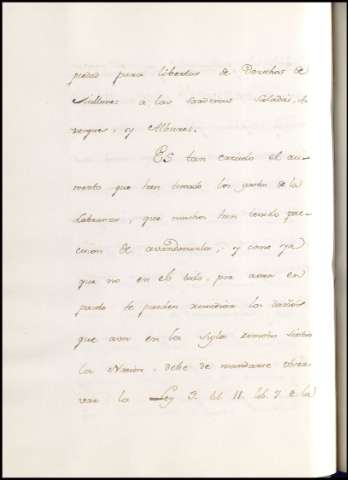 para libertar de Derechos de
a las sardinas saladas, A
rengues, y Albures.
Es tan crecido el au-
mento que han tomado los gastos de la
Labranza, que muchos han tenido pre-
cision de abandonarla, y como ya
que no en el todo, por aora en
parte se pueden remediar los daños
que aun en la siglo
la Nacion, debe de mandarse obser
var la Ley 2. tit. 11. lib. 7. de la